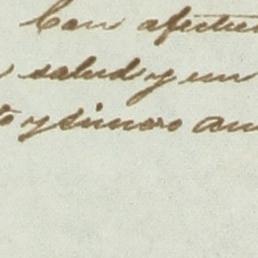 Con afectu
salud y un
y sincero am